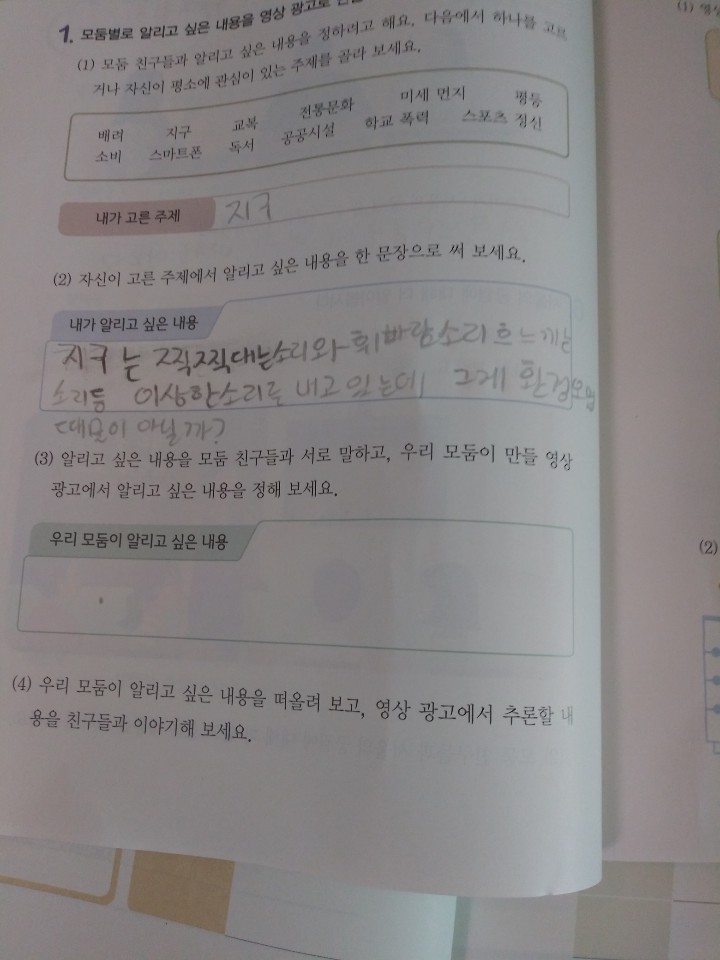 1. 모둠별로 알리고 싶은 내용을 영상 광고로
(1) 모둠 친구들과 알리고 싶은 내용을 정하려고 해요. 다음에서 하나를 고르
거나 자신이 평소에 관심이 있는 주제를 골라 보세요.
배려 지구 교복 전통문화 미세 먼지 평등
소비 스마트폰 독서 공공시설 학교 폭력 스포츠 정신
내가 고른 주제 지구
(2) 자신이 고른 주제에서 알리고 싶은 내용을 한 문장으로 써 보세요.
내가 알리고 싶은 내용
지구는 찍찍대는소리와 휘빠람소리 흐느끼는
소리등 이상한소리를 내고 있는데 그게 환경오염
때문이 아닐까?
(3) 알리고 싶은 내용을 모둠 친구들과 서로 말하고, 우리 모둠이 만들 영상
광고에서 알리고 싶은 내용을 정해 보세요.
우리 모둠이 알리고 싶은 내용
(4) 우리 모둠이 알리고 싶은 내용을 떠올려 보고, 영상 광고에서 추론할 내
용을 친구들과 이야기해 보세요.
(1)
(2)